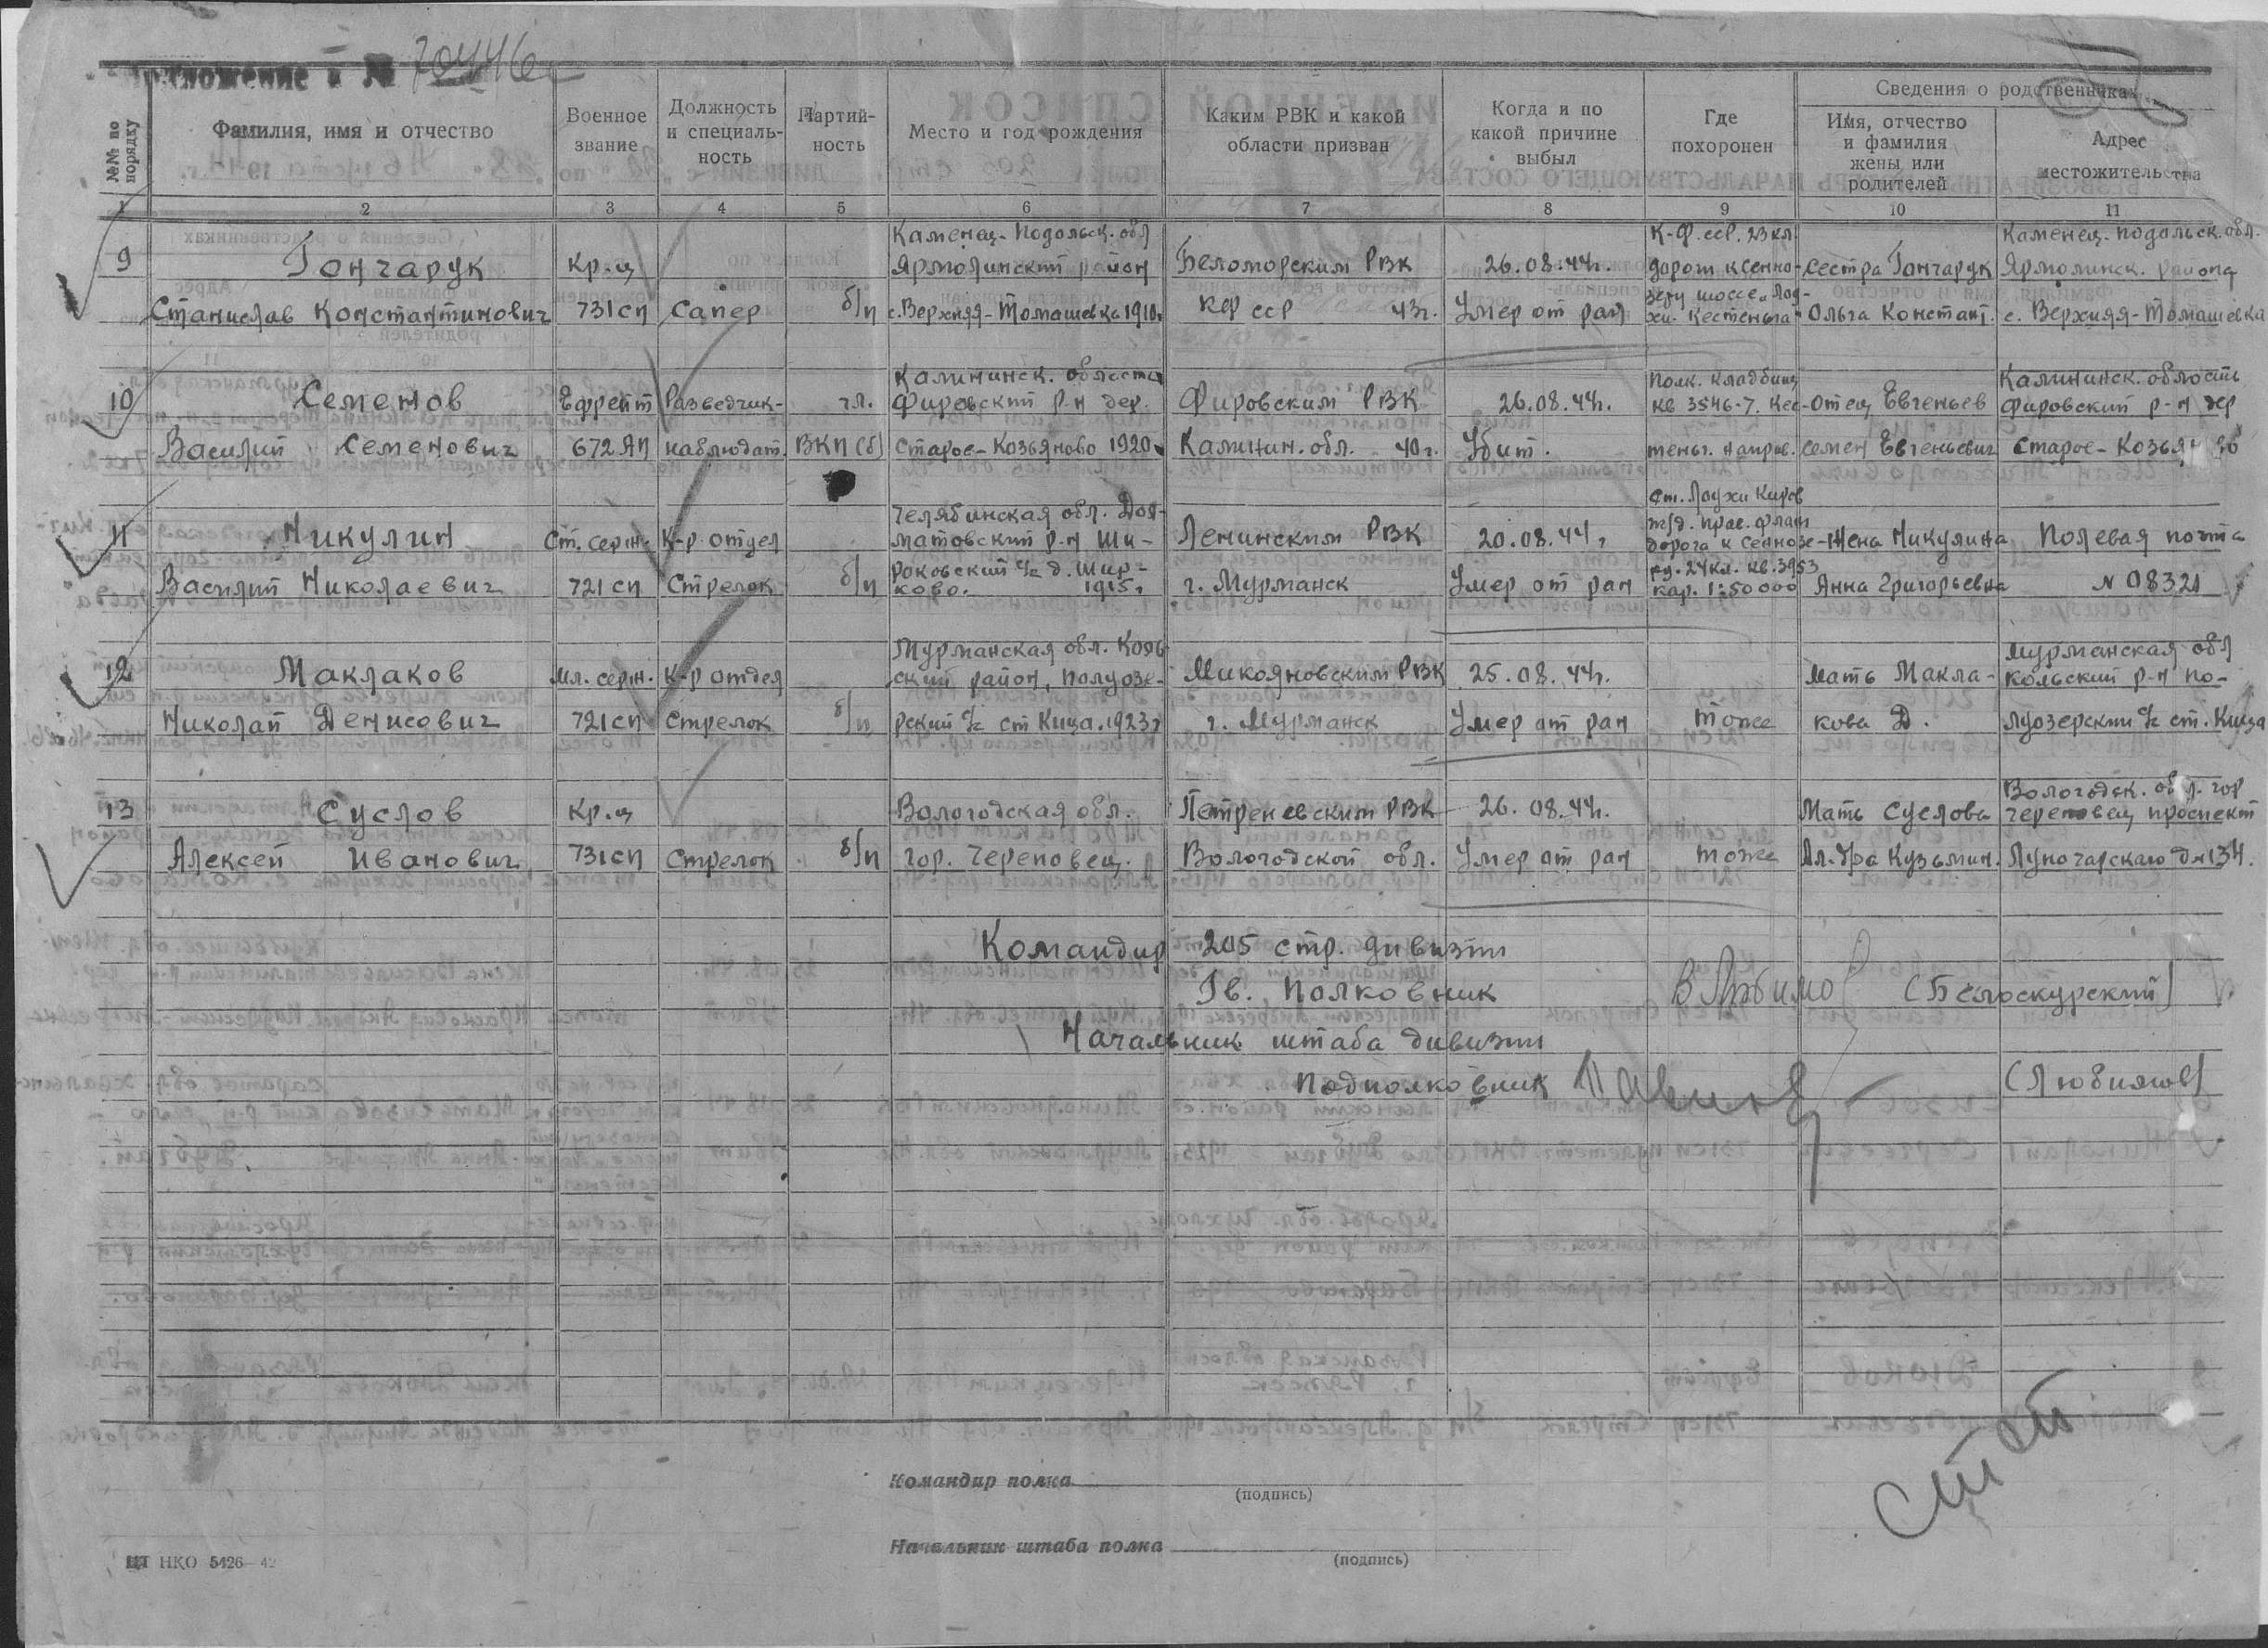 Приложение к № 70446с
№№ по порядку
Фамилия, имя и отчество
Военное звание
Должность и специаль-ность
Партий-ность
Место и год рождения
Каким РВК и какой области призван
Когда и по какой причине выбыл
Где похоронен
Сведения о родственниках
Имя, отчество и фамилия жены или родителей
Адрес местожительства
1 2 3 4 5 6 7 8 9 10 11
Каменец-Подольск. обл К-Ф. сср. 23 кл. Каменец-подольск. обл.
9 Гончарук Кр-ц Ярмолинский район Беломорским РВК 26.08.44г. дорог к Сенно- Сестра Гончарук Ярмолинск. района
Станислав Константинович 731 сп Сапер б/п с. Верхняя-Томашевка 1910г. КФ сср 43г. Умер от ран зеру шоссе „Лоу-хи-Кестеньга" Ольга Констант. с. Верхняя-Томашевка
Калининск. области Полк. кладбище Калининск. область
10 Семенов Ефрейт Разведчик- чл. Фировский р-н дер. Фировским РВК 26.08.44г. кв 3546-7. Кес- отец Евгеньев Фировский р-н дер
Василий Семенович 672 АП наблюдат. ВКП(б) Старое-Козьяново 1920г Калинин. обл. 40г. Убит. теньг. направ. Семен Евгеньевич Старое-Козьяново
Челябинская обл. Дол- ст. Лоухи Киров
11 Никулин Ст. серж. К-р отдел матовский р-н Ши- Ленинским РВК 20.08.44г ж/д. дорога к Сенозе- Жена Никулина Полевая почта
Василий Николаевич 721 сп Стрелок б/п роковский с/с д. Шир-ково. 1915г г. Мурманск Умер от ран ру. 24 кл. кв. 3953 кар. 1:50000 Анна Григорьевна № 08321
Мурманская обл. Коль- Мурманская обл
12 Маклаков Мл. серж. К-р отдел ский район, Полуозе- Микояновским РВК 25.08.44г. Мать Макла- Кольский р-н По-
Николай Денисович 721 сп Стрелок б/п рский с/с ст Кица. 1923г г. Мурманск Умер от ран тоже кова Д. луозерский с/с ст. Кица
Вологодск. обл. гор
13 Суслов Кр-ц Вологодская обл. Петреневским РВК 26.08.44г. Мать Суслова Череповец проспект
Алексей Иванович 731 сп Стрелок б/п гор. Череповец. Вологодской обл. Умер от ран тоже Ал-дра Кузьмин. Луночарского д. 134.
Командир 205 стр. дивизии
Гв. Полковник (Белоскурский)
Начальник штаба дивизии
Подполковник (Любимов)
Командир полка
(подпись)
Начальник штаба полка
(подпись)
ЦТ НКО 5426—42